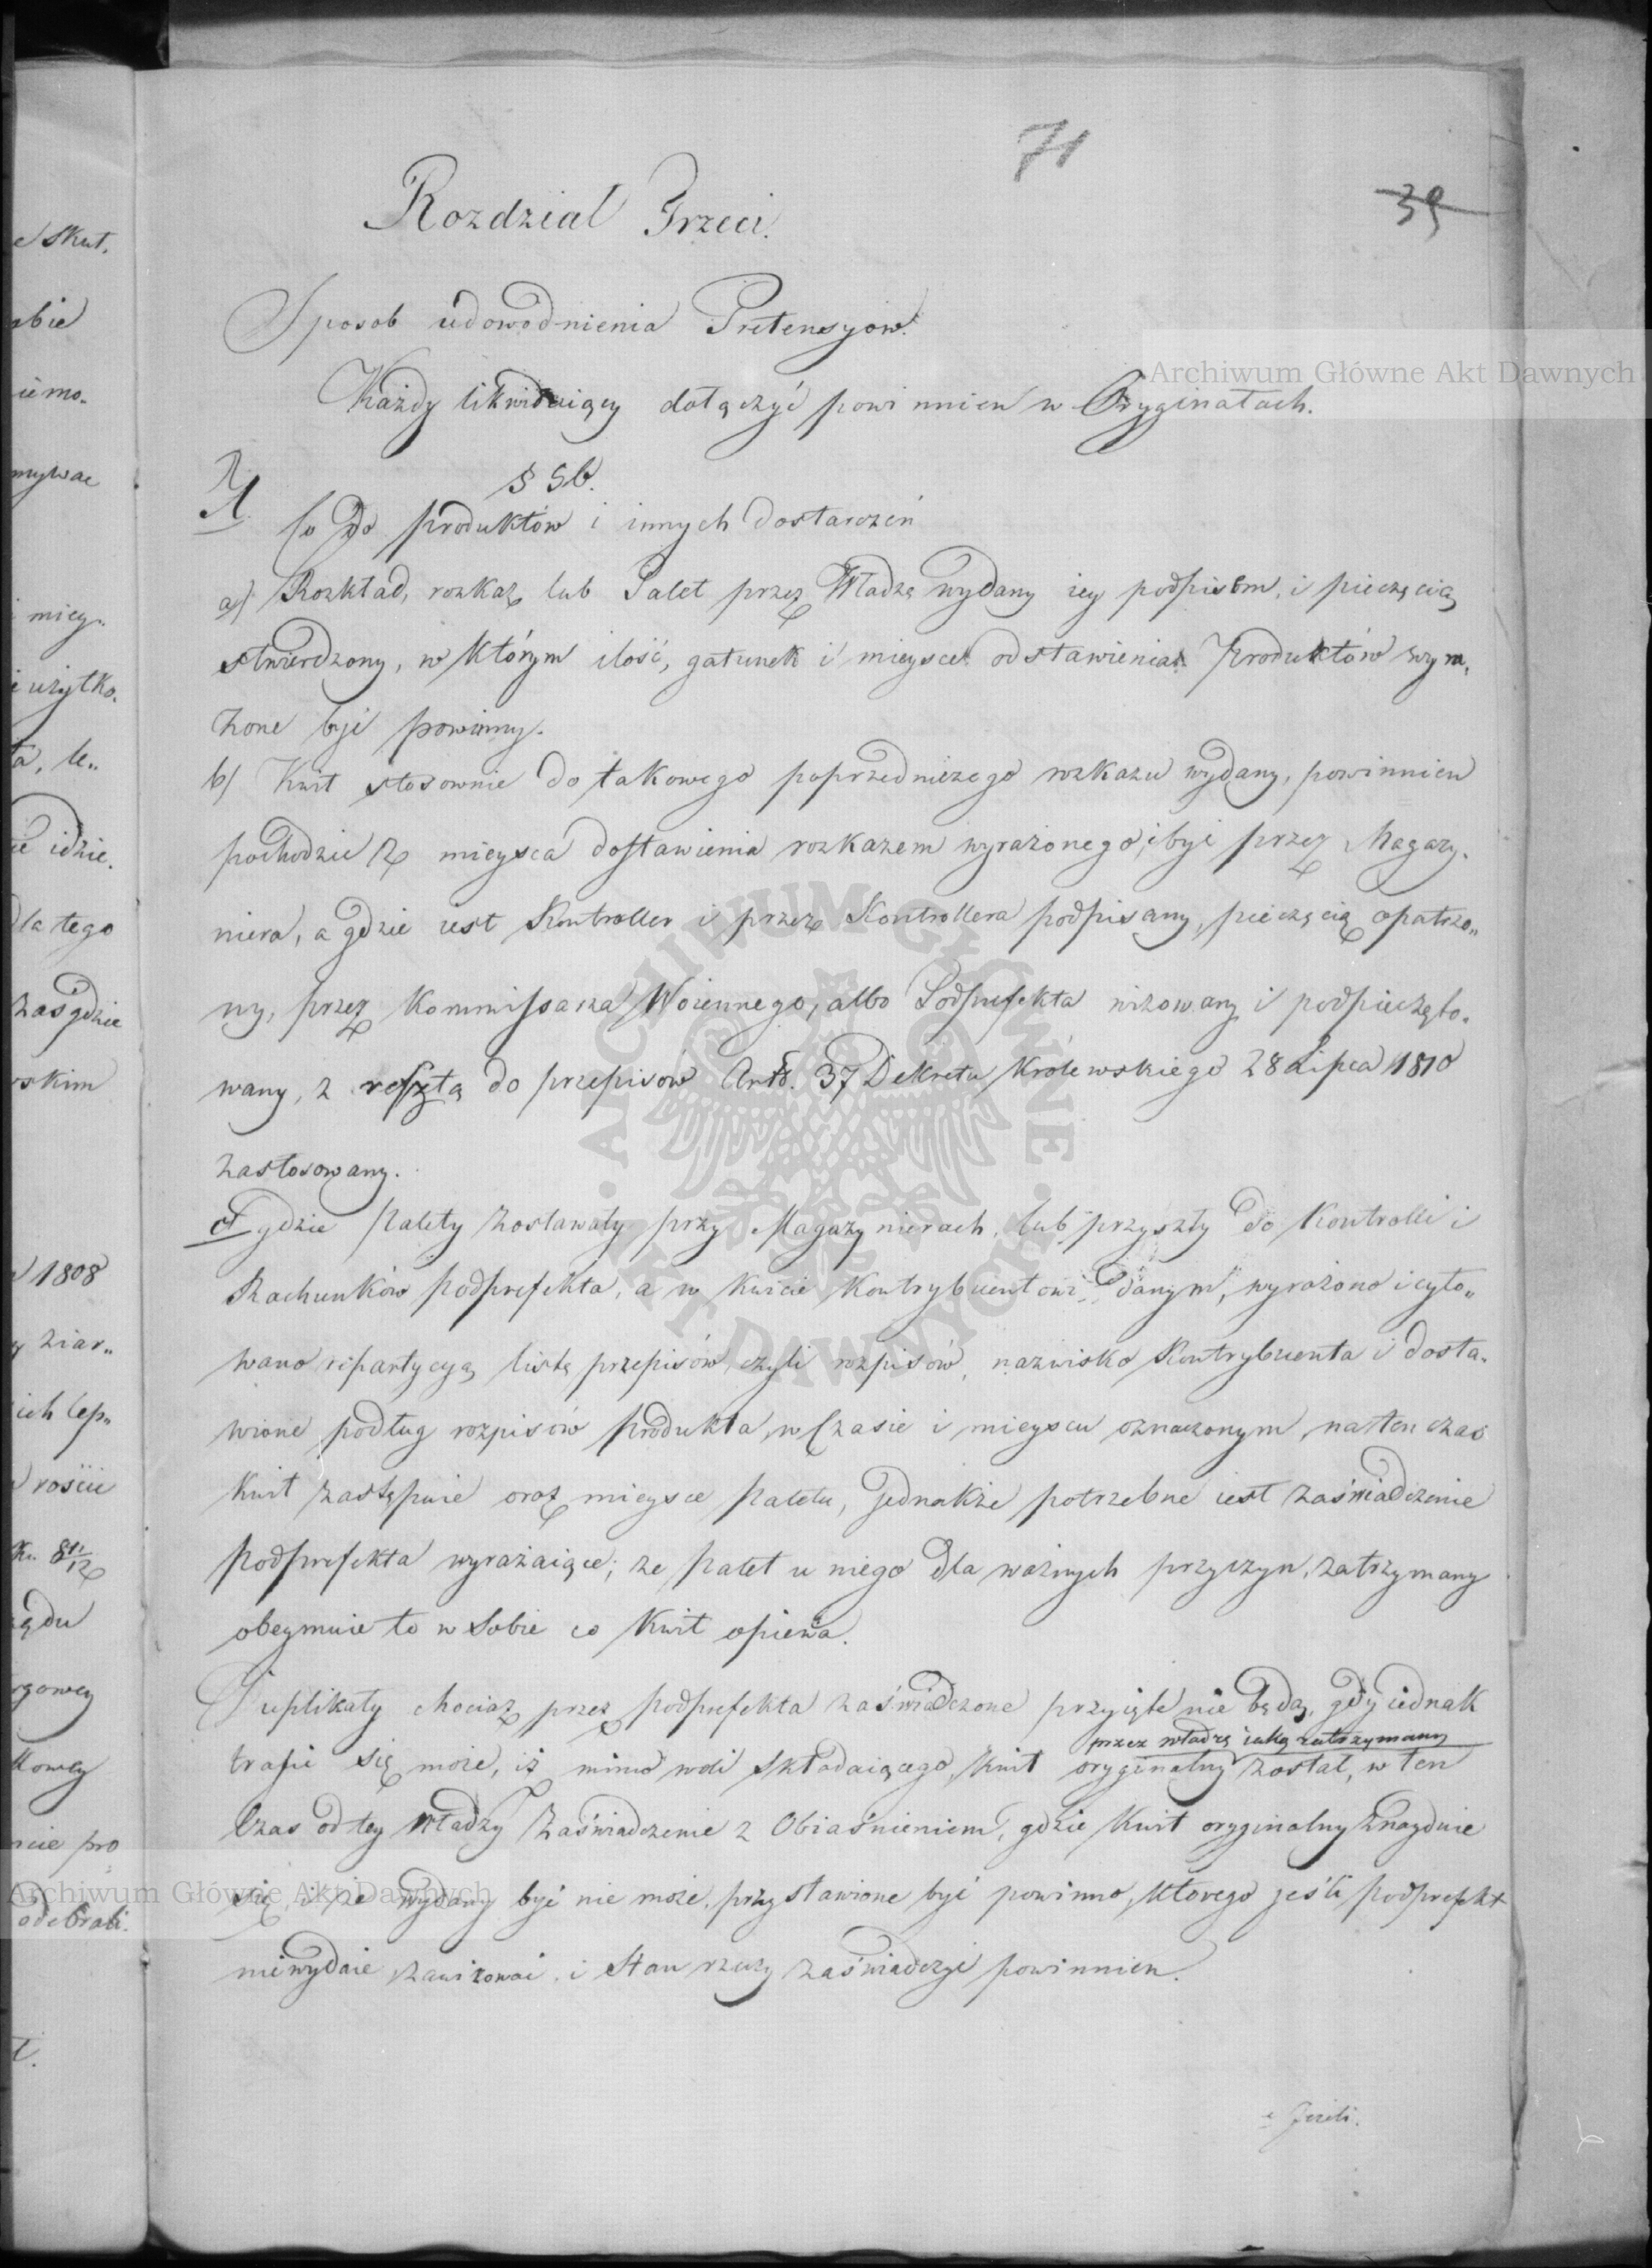 71
39
Rozdział Trzeci.
Sposob udowodnienia Pretensyow.
Każdy likwiduiący dołączyć powinnien w Oryginałach.
§ 56.
A Co do produktów i innych dostarczeń
a) Rozkład, rozkaz lub Palet przez Władzę wydany iey podpisem, i pieczęcią
stwierdzony, w którym ilość, gatunek i mieysce odstawienia Produktów wyra„
żone być powinny.
b) Kwit stosownie do takowego poprzedniczego rozkazu wydany, powinnien
pochodzić z mieysca dostawienia rozkazem wyrażonego, i być przez Magazy„
niera, a gdzie iest Kontroller i przez Kontrollera podpisany, pieczęcią opatrzo„
ny, przez Kommissarza Woiennego, albo Podprefekta wizowany i podpieczęto„
wany, z resztą do przepisów Artt. 37 Dekretu Królewskiego 28 Lipca 1810
zastosowany.
c) gdzie Palety zostawały przy Magazynierach, lub przyszły do Kontrolli i
Rachunków Podprefekta, a w kwicie kontrybuentowi danym, wyrażono i cyto„
wano repartycyą listę przepisów czyli rozpisów, nazwisko Kontrybuenta i dosta„
wione podług rozpisów Produkta, w Czasie i mieyscu oznaczonym, natenczas
Kwit zastępuie oraz mieysce Paletu, Jednakże potrzebne iest zaświadczenie
Podprefekta wyrażaiące; że Palet u niego dla ważnych przyczyn, zatrzymany
obeymuie to w Sobie co Kwit opiewa.
Duplikaty chociaż przez Podprefekta zaświadczone przyięte nie będą, gdy iednak
przez władzę iaką zatrzymany
trafić się może, iż mimo woli składaiącego, kwit oryginalny został, w ten
Czas od tey władzy zaświadczenie z Obiaśnieniem, gdzie Kwit oryginalny znayduie
się, i że wydany być nie może, przystawione być powinno, którego jeśli Podprefekt
niewydaie, zawizować i Stan rzeczy zaświadczyć powinnien.
Jeżeli.
e Skut.
mywac
i miey„
i użytko„
ta, le„
ie idzie.
dla tego
zaś gdzie
rskim
1808
ich lep„
rości
ządu
odebrali.
Archiwum Główne Akt Dawnych
Archiwum Główne Akt Dawnych
ARCHIWUM GŁÓWNE AKT DAWNYCH